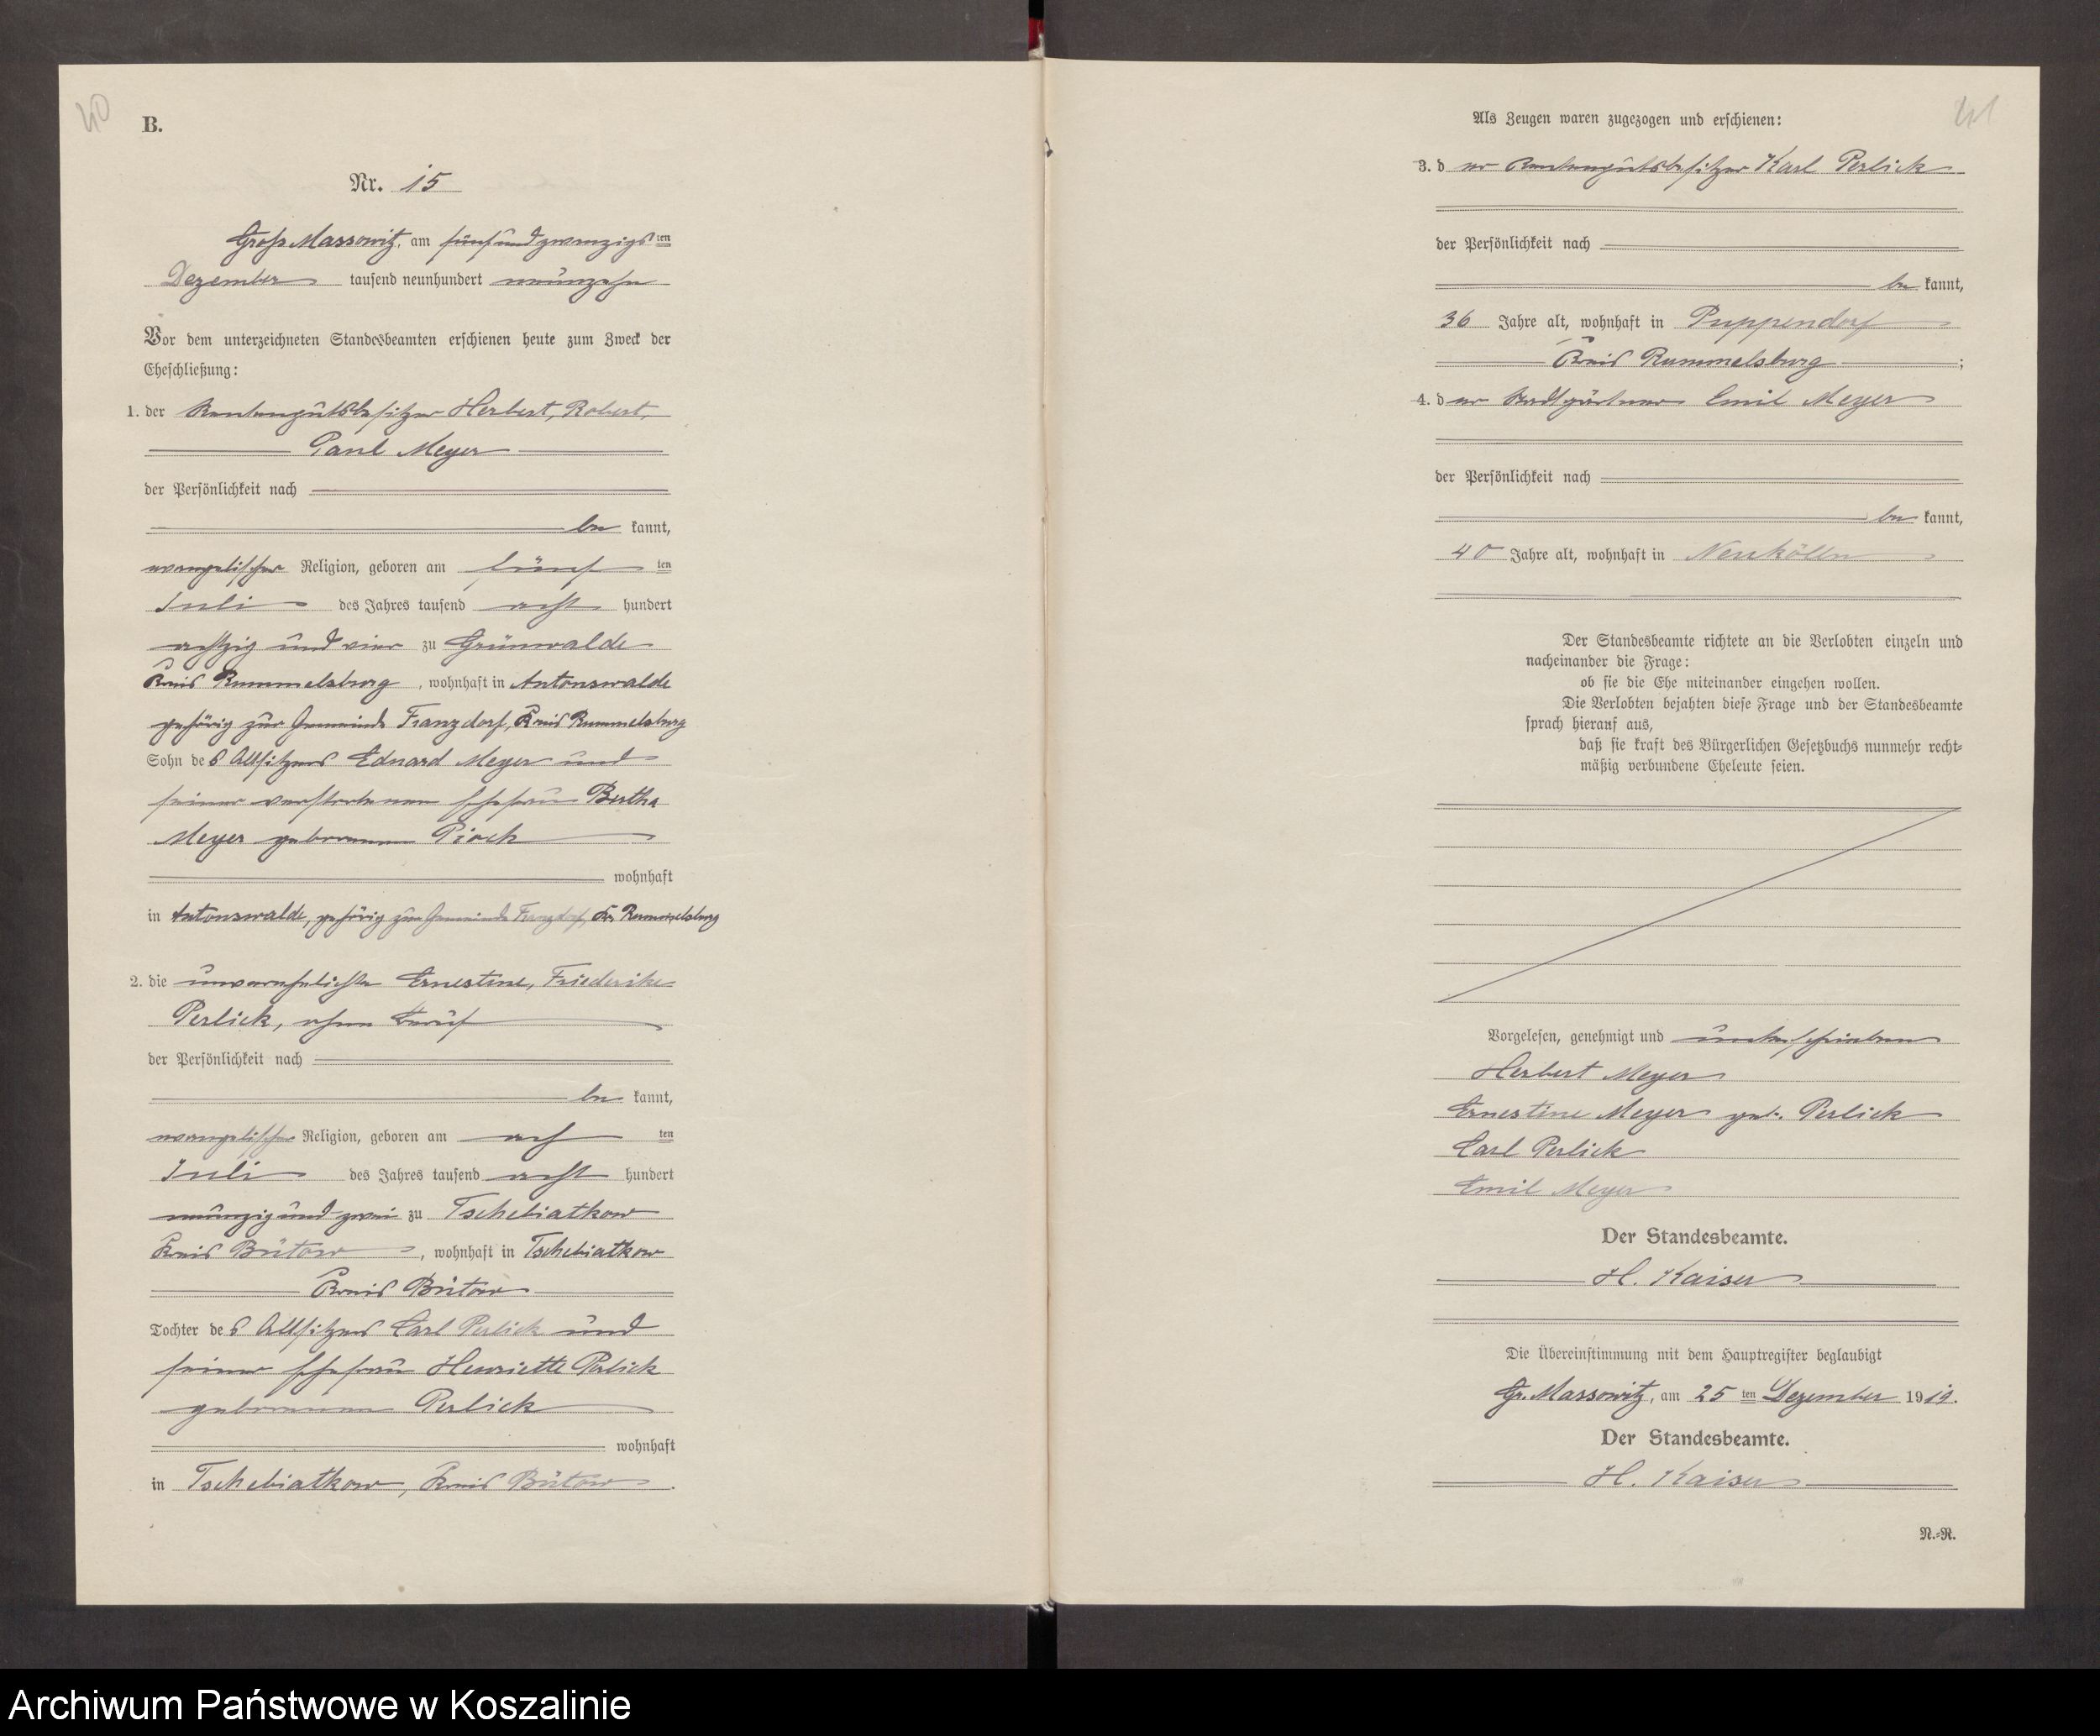 40
B.
Nr. 15
Groß Massowitz, am fünfundzwanzigsten
Dezember tausend neunhundert neunzehn
Vor dem unterzeichneten Standesbeamten erschienen heute zum Zweck der
Eheschließung:
1. der Rentengutsbesitzer Herbert, Robert,
Paul Meyer
der Persönlichkeit nach
be kannt,
evangelischer Religion, geboren am fünf ten
Juli des Jahres tausend acht hundert
achtzig und vier zu Grünwalde
Kreis Rummelsburg, wohnhaft in Antonswalde
gehörig zur Gemeinde Franzdorf, Kreis Rummelsburg
Sohn des Altsitzers Eduard Meyer und
seiner verstorbenen Ehefrau Bertha
Meyer geborenen Piock
wohnhaft
in Antonswalde, gehörig zur Gemeinde Franzdorf, Kr. Rummelsburg
2. die unverehelichte Ernestine, Friederike
Perlick, ohne Beruf
der Persönlichkeit nach
be kannt,
evangelischer Religion, geboren am ach ten
Juli des Jahres tausend acht hundert
neunzig und zwei zu Tschebiatkow
Kreis Bütow, wohnhaft in Tschebiatkow
Kreis Bütow
Tochter des Altsitzers Carl Perlick und
seiner Ehefrau Henriette Perlick
geborenen Perlick
wohnhaft
in Tschebiatkow, Kreis Bütow.
41
Als Zeugen waren zugezogen und erschienen:
3. d er Rentengutsbesitzer Karl Perlick
der Persönlichkeit nach
be kannt,
36 Jahre alt, wohnhaft in Puppendorf
Kreis Rummelsburg;
4. d er Stadtgärtner Emil Meyer
der Persönlichkeit nach
be kannt,
40 Jahre alt, wohnhaft in Neukölln
Der Standesbeamte richtete an die Verlobten einzeln und
nacheinander die Frage:
ob sie die Ehe miteinander eingehen wollen.
Die Verlobten bejahten diese Frage und der Standesbeamte
sprach hierauf aus,
daß sie kraft des Bürgerlichen Gesetzbuchs nunmehr recht-
mäßig verbundene Eheleute seien.
Vorgelesen, genehmigt und unterschrieben
Herbert Meyer
Ernestine Meyer geb. Perlick
Carl Perlick
Emil Meyer
Der Standesbeamte.
H. Kaiser
Die Übereinstimmung mit dem Hauptregister beglaubigt
Gr. Massowitz, am 25 ten Dezember 1919.
Der Standesbeamte.
H. Kaiser
N.-R.
Archiwum Państwowe w Koszalinie